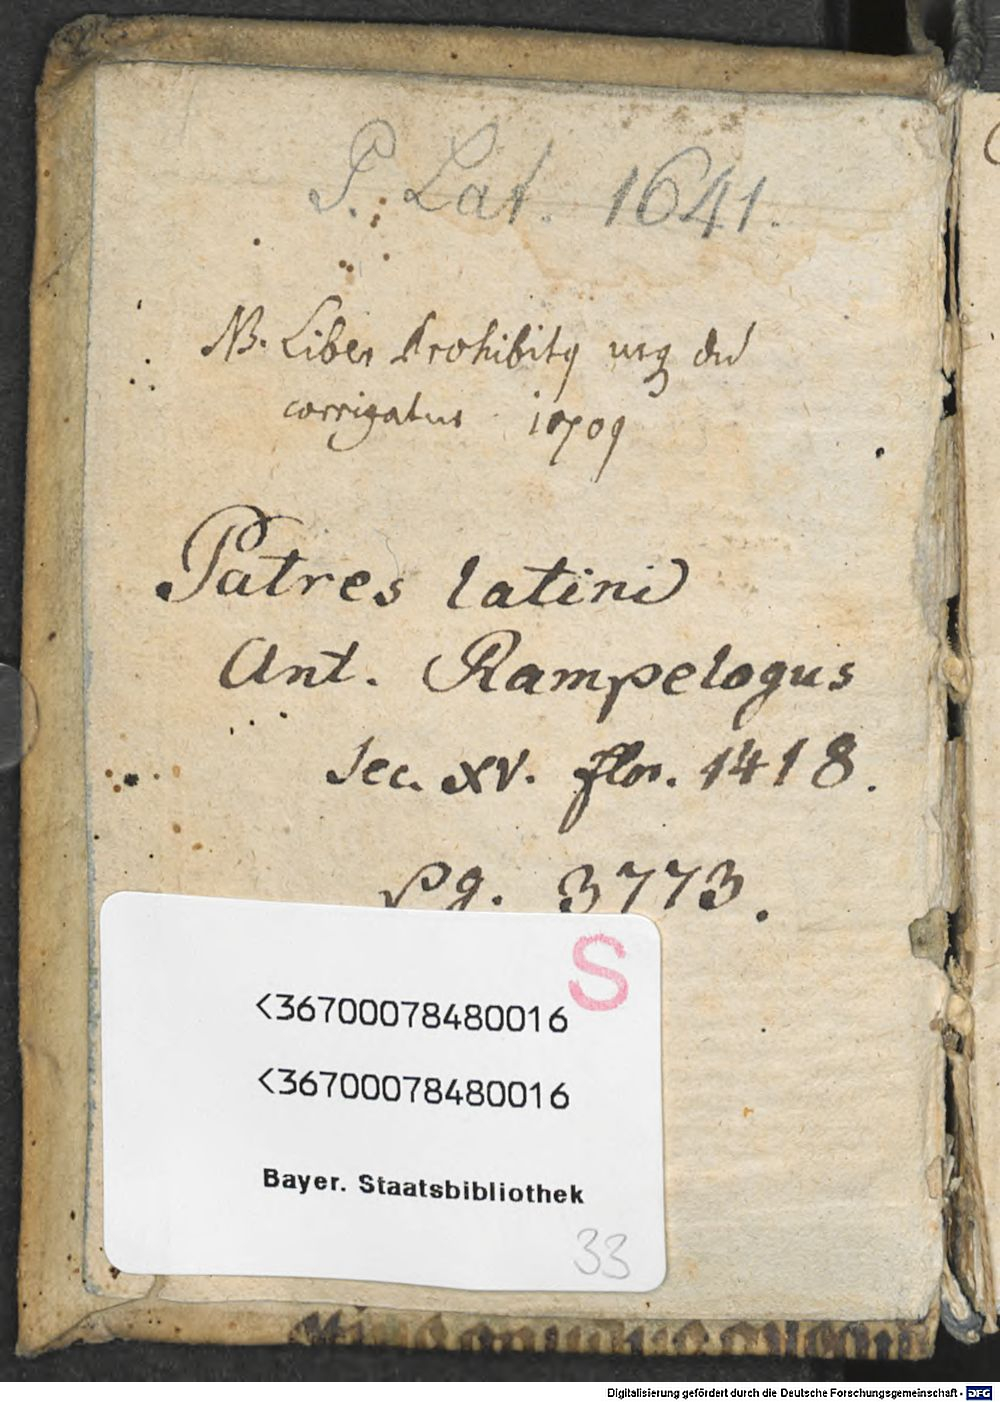 P. Lat. 1641.
NB. Liber Prohibitq usq
corrigatur
Patres latini
Ant. Rampelogus
Sec. XV. flor. 1418.
Pg. 3773.
S
<36700078480016
<36700078480016
Bayer. Staatsbibliothek
33
Digitalisierung gefördert durch die Deutsche Forschungsgemeinschaft - DFG